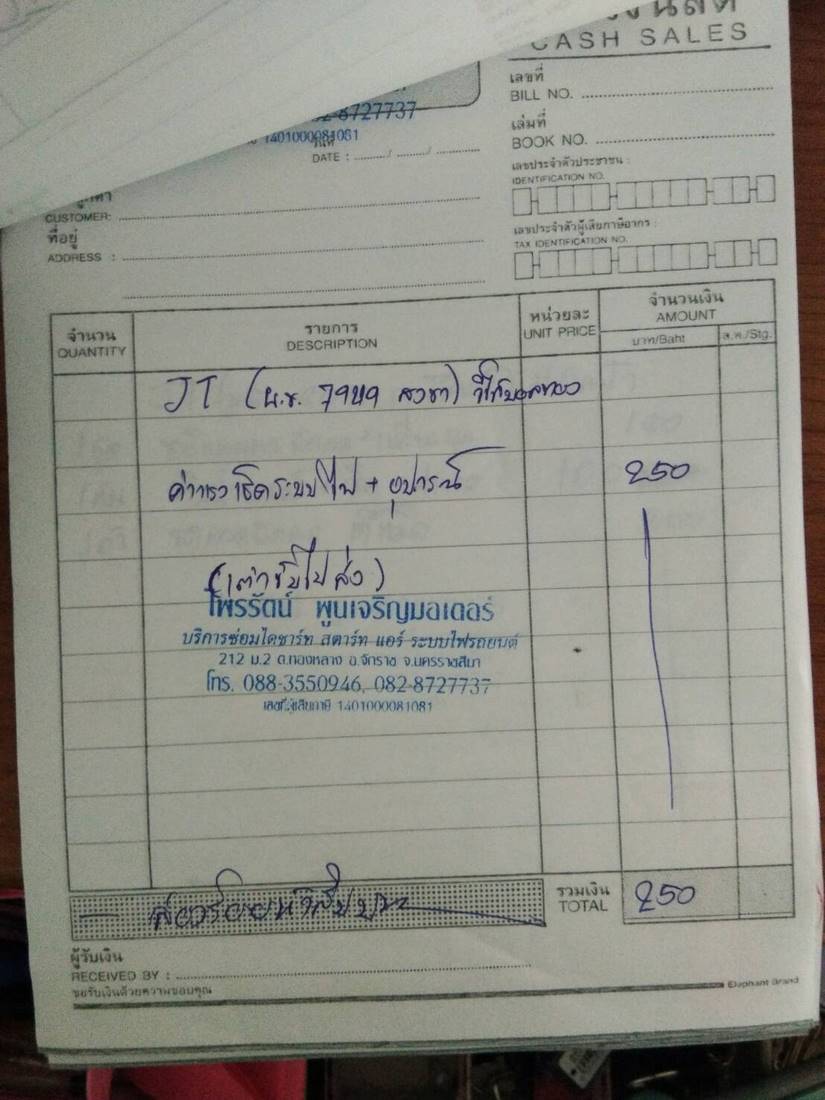 CASH SALES
เลขที่
BILL NO.
082-8727737
1401000081081
วันที่
DATE : / /
เล่มที่
BOOK NO.
เลขประจำตัวประชาชน :
IDENTIFICATION NO.
CUSTOMER:
ที่อยู่
ADDRESS :
เลขประจำตัวผู้เสียภาษีอากร :
TAX IDENTIFICATION NO.
จำนวน
QUANTITY
รายการ
DESCRIPTION
หน่วยละ
UNIT PRICE
จำนวนเงิน
AMOUNT
บาท/Baht
ส.ต./Stg.
JT
ค่าแรงเช็คระบบไฟ + อุปกรณ์ 250
ไพรรัตน์ พูนเจริญมอเตอร์
บริการซ่อมไดชาร์ท สตาร์ท แอร์ ระบบไฟรถยนต์
212 ม.2 ต.ทองหลาง อ.จักราช จ.นครราชสีมา
โทร. 088-3550946, 082-8727737
เลขที่ผู้เสียภาษี 1401000081081
สองร้อยห้าสิบบาท
รวมเงิน
TOTAL
250
ผู้รับเงิน
RECEIVED BY :
ขอรับเงินด้วยความขอบคุณ
Elephant Brand